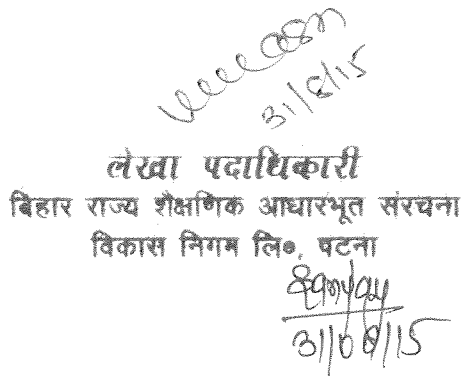 31/8/15
लेखा पदाधिकारी
बिहार राज्य शैक्षणिक आधारभूत संरचना
विकास निगम लि०, पटना
Sanjay
31/08/15